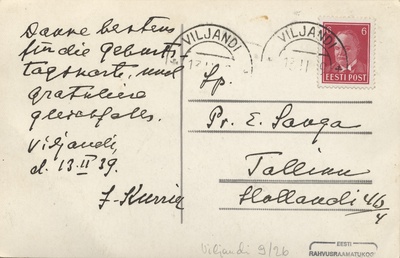 Danke bestens
für die Geburts-
tagskarte, und
gratuliere
gleichfalls.
Viljandi,
d. 13.II 39.
J. Kurrik
VILJANDI
VILJANDI
6
EESTI POST
Lp.
Pr. E. Saoga
Tallinn
Hollandi 4/6
Viljandi 9/26
EESTI
RAHVUSRAAMATUKOGU